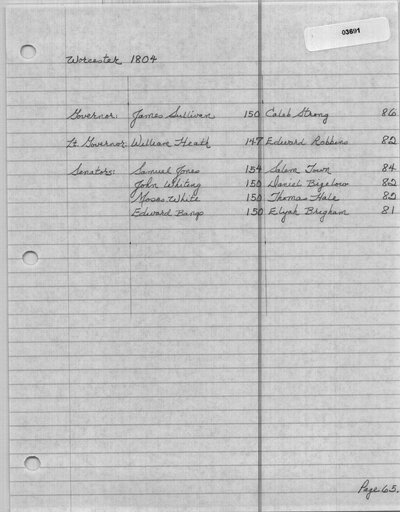 03691
Worcester 1804
Governor: James Sullivan 150 Caleb Strong 86
Lt. Governor William Heath 147 Edward Robbins 82
Senators: Samuel Jones 154 Salem Town 84
John Whiting 150 Daniel Bigelow 82
Moses White 150 Thomas Hale 82
Edward Bangs 150 Elijah Brigham 81
Page 65.